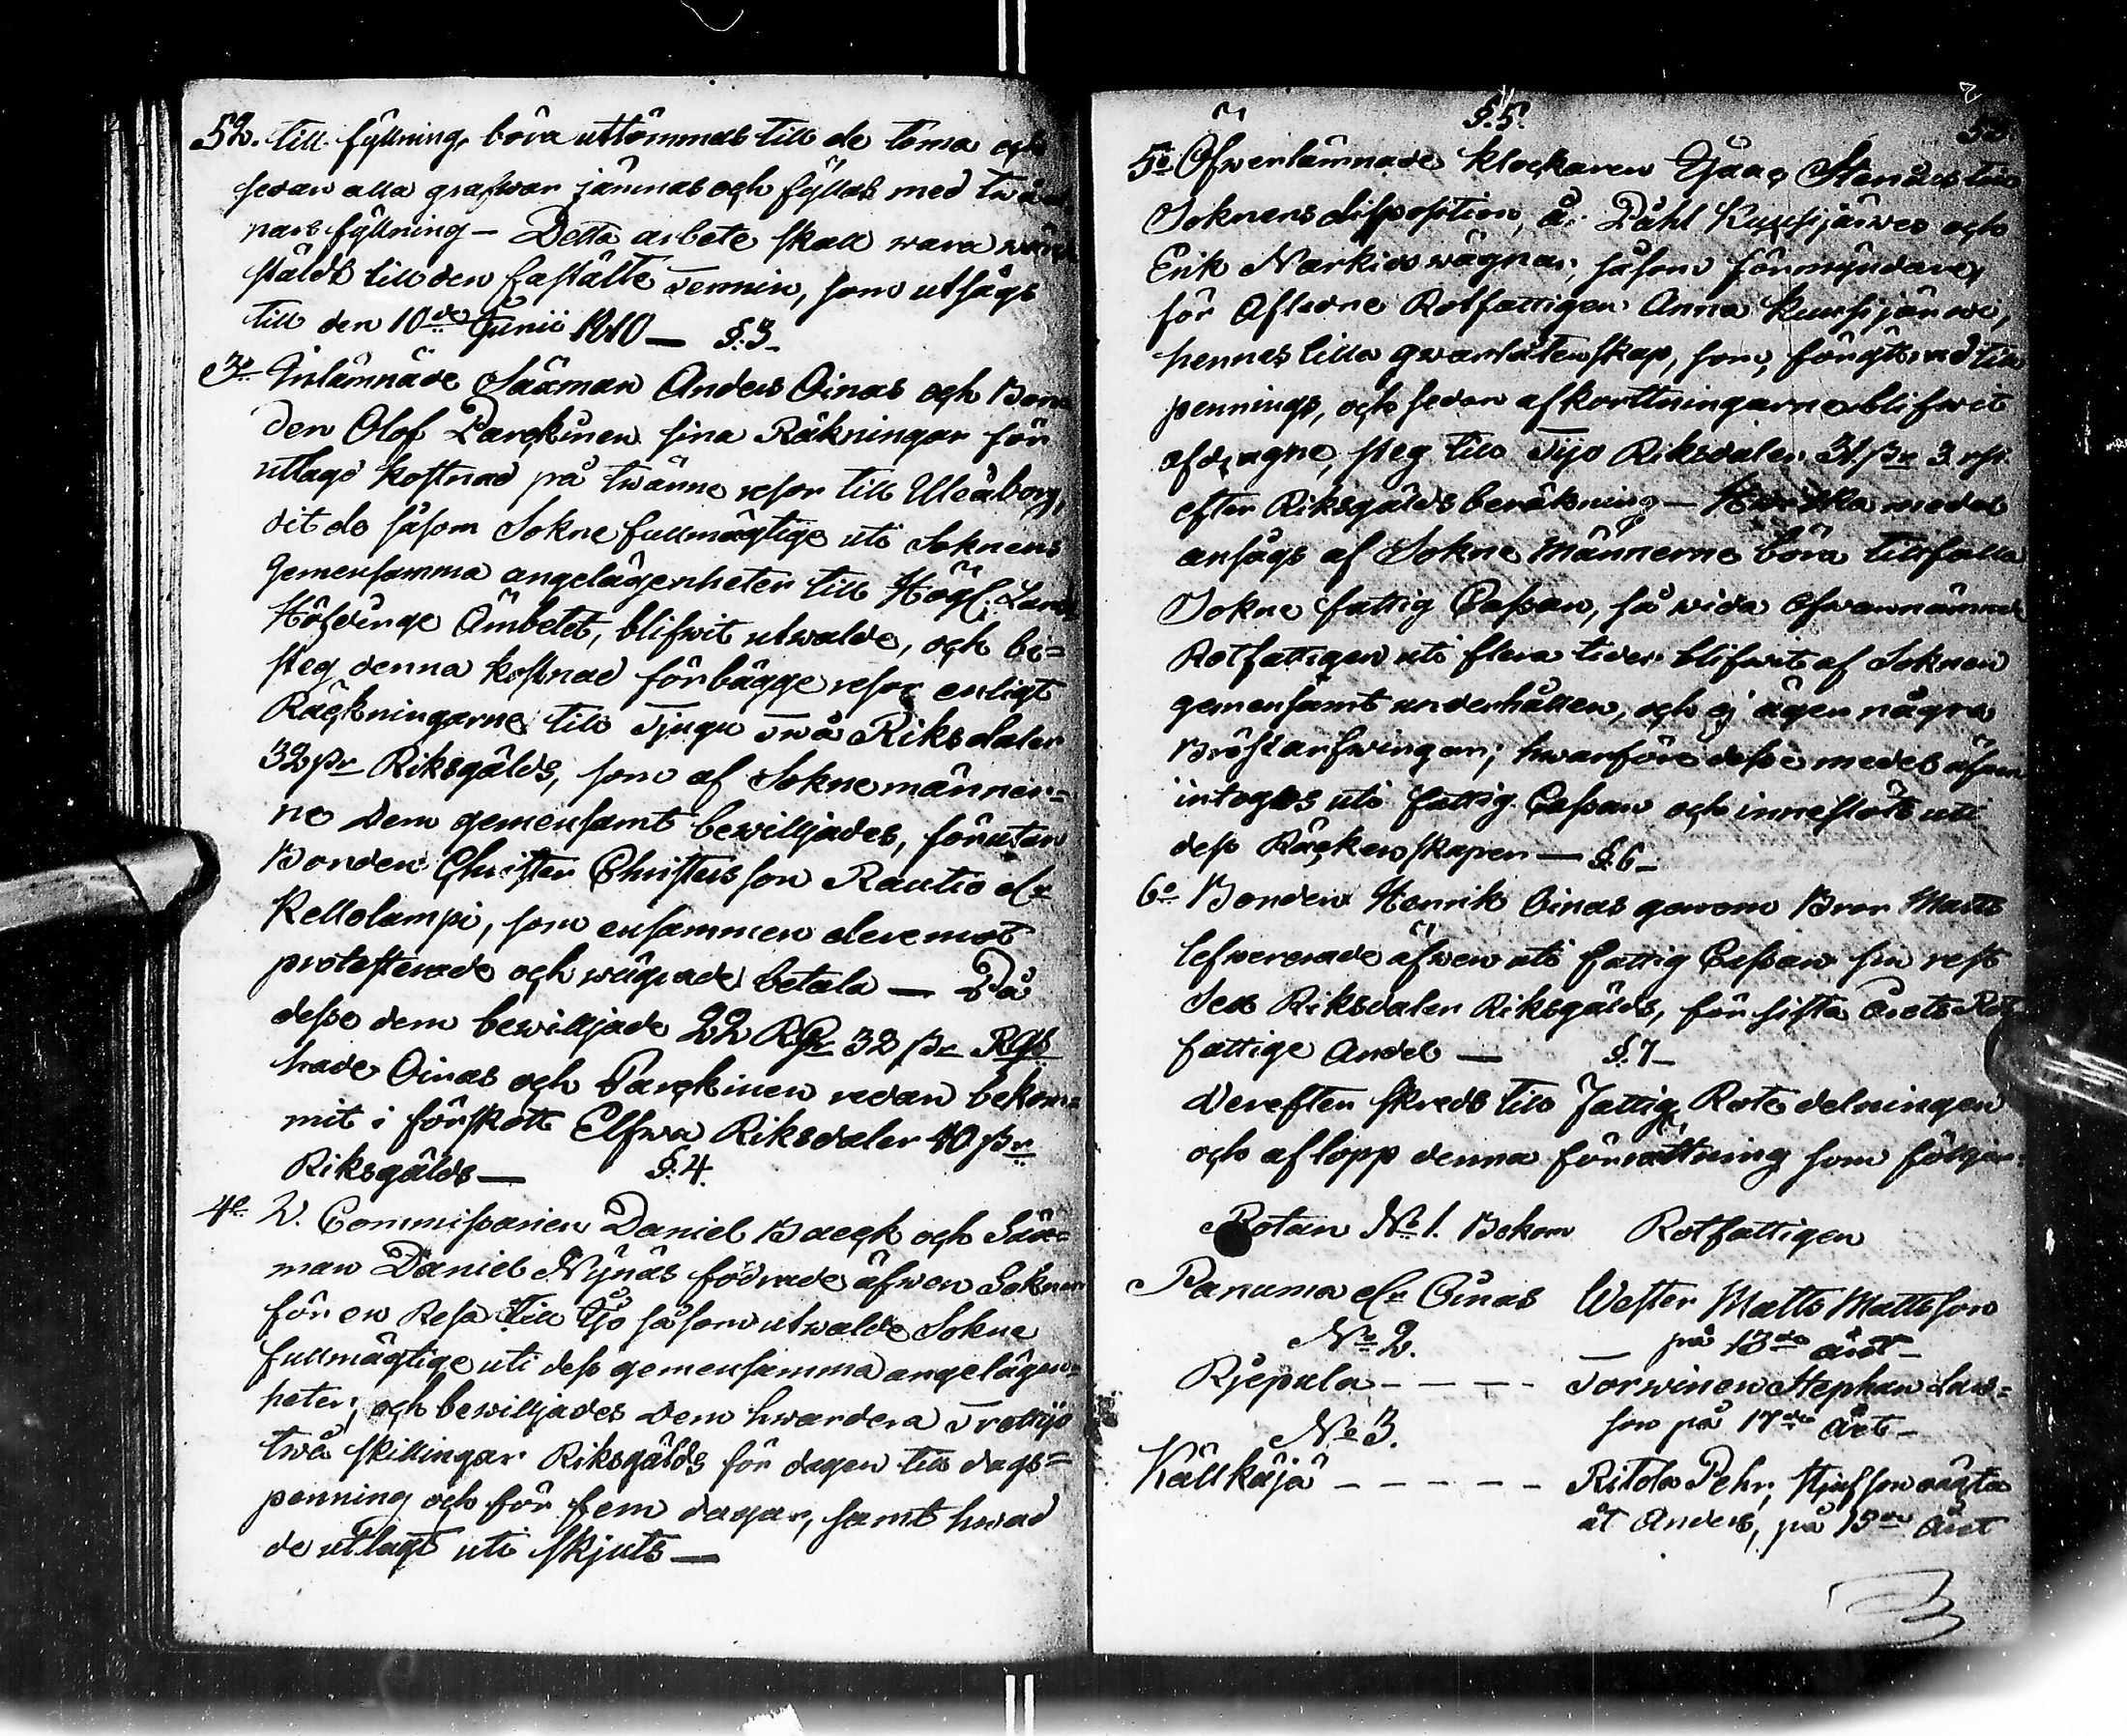 52. till fyllning, böra uttömmas till de toma och
sedan alla grafwar jämnas och fyllas med
nars fyllning – Detta arbete skall wara
stäldt till den fastälte Termin, som utsågs
till den 10de Junii 1810 — §.3.
3o Inlämnade Säxman Anders Oinas och Bon-
den Olof Parckinen sina Räkningar för
utlagd kostnad på twänne resor till Uleåborg,
dit de såsom Sokne fullmägtige uti Soknens
gemensamma angelägenheter till Högl. Lands
Höfdinge Ämbetet, blifwit utwalde, och be=
steg denna kostnad för bägge resor enligt
Räckningarne till Tjugu Twå Riksdaler
32 sk. Riksgälds, som af Sokne männer=
ne dem gemensamt bewilljades, förutan
Bonden Christer Christersson Rautio elr
Kellolampi, som ensammen deremot
protesterade och wägrade betala — På
desse dem bewilljade 22 Rdr 32 sk. Rgs
hade Oinas och Parckinen redan bekom=
mit i förskott Elfwa Riksdaler 40 sk.
Riksgälds — §.4.
4o V. Commissarien Daniel Baeck och Säx=
man Daniel Nynäs fodrade äfwen Soknen
för en Resa till Ijo såsom utwalde Sokne
fullmägtige uti dess gemensamma angelägen=
heter; och bewilljades dem hwardera Trettijo
twå skillingar Riksgälds för dagen till dags=
penning och för fem dagar, samt hwad
de utlagt uti skjuts —
53
§.5.
5o Öfwerlämnade klockaren Isaac Stenius till
Soknens disposition, å Påhl Kuusijärwes och
Erik Narkios wägnar, såsom förmyndare,
för Afledne Rotfattigen Anna Kuusijärwi,
hennes lilla qwarlåtenskap, som, förytrad till
pennings, och sedan afkorttningarne blifwit
afdragne, steg till Tijo Riksdaler 31 sk. 3 rst.
efter Riksgälds beräkning — Hwilka medel
ansågs af Sokne männerne böra tillfalla
Sokne fattig Cassan, så wida ofwannämnde
Rotfattigen uti flera tider blifwit af Soknen
gemensamt underhållen, och ej ägen några
Bröstarfwingar; hwarföre desse medel äfwen
intogos uti fattig Cassan och inneslöts uti
dess Räckenskaper — §.6 –
6o Bonden Henrik Oinas genom Bror Matts
lefwererade äfwen uti fattig Cassan sin rest
Sex Riksdaler Riksgälds, för sista årets Rot
fattige Andel — §.7 –
Derefter skreds till Fattig Rote delningen
och aflopp denna förrättning som följer:
Rotan No 1. Bekom Rotfattigen
Panuma elr Oinas Wester Matts Mattsson
på 13de året –
No 2.
Kjepula – – – – Torwinen Stephan Lars=
son på 17de året –
No 3.
Källkäjä – – – – – Ritola Pehr,
åt Anders, på 15de året